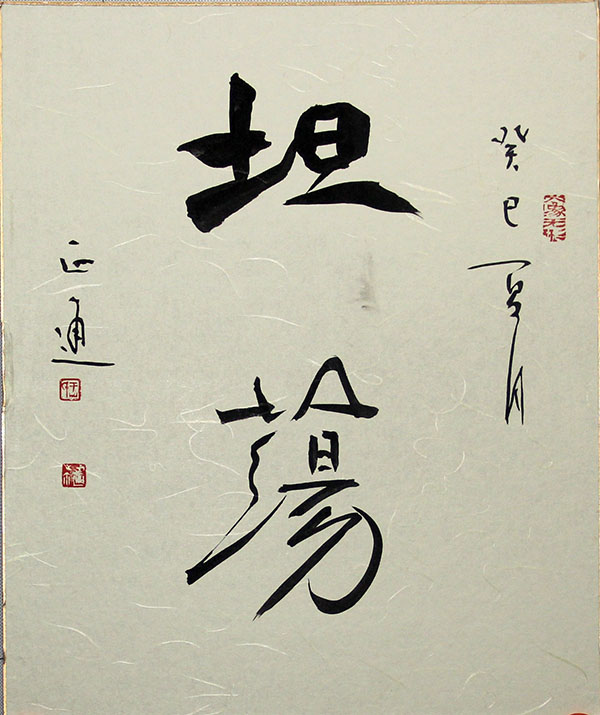 癸巳夏月
坦蕩
正通